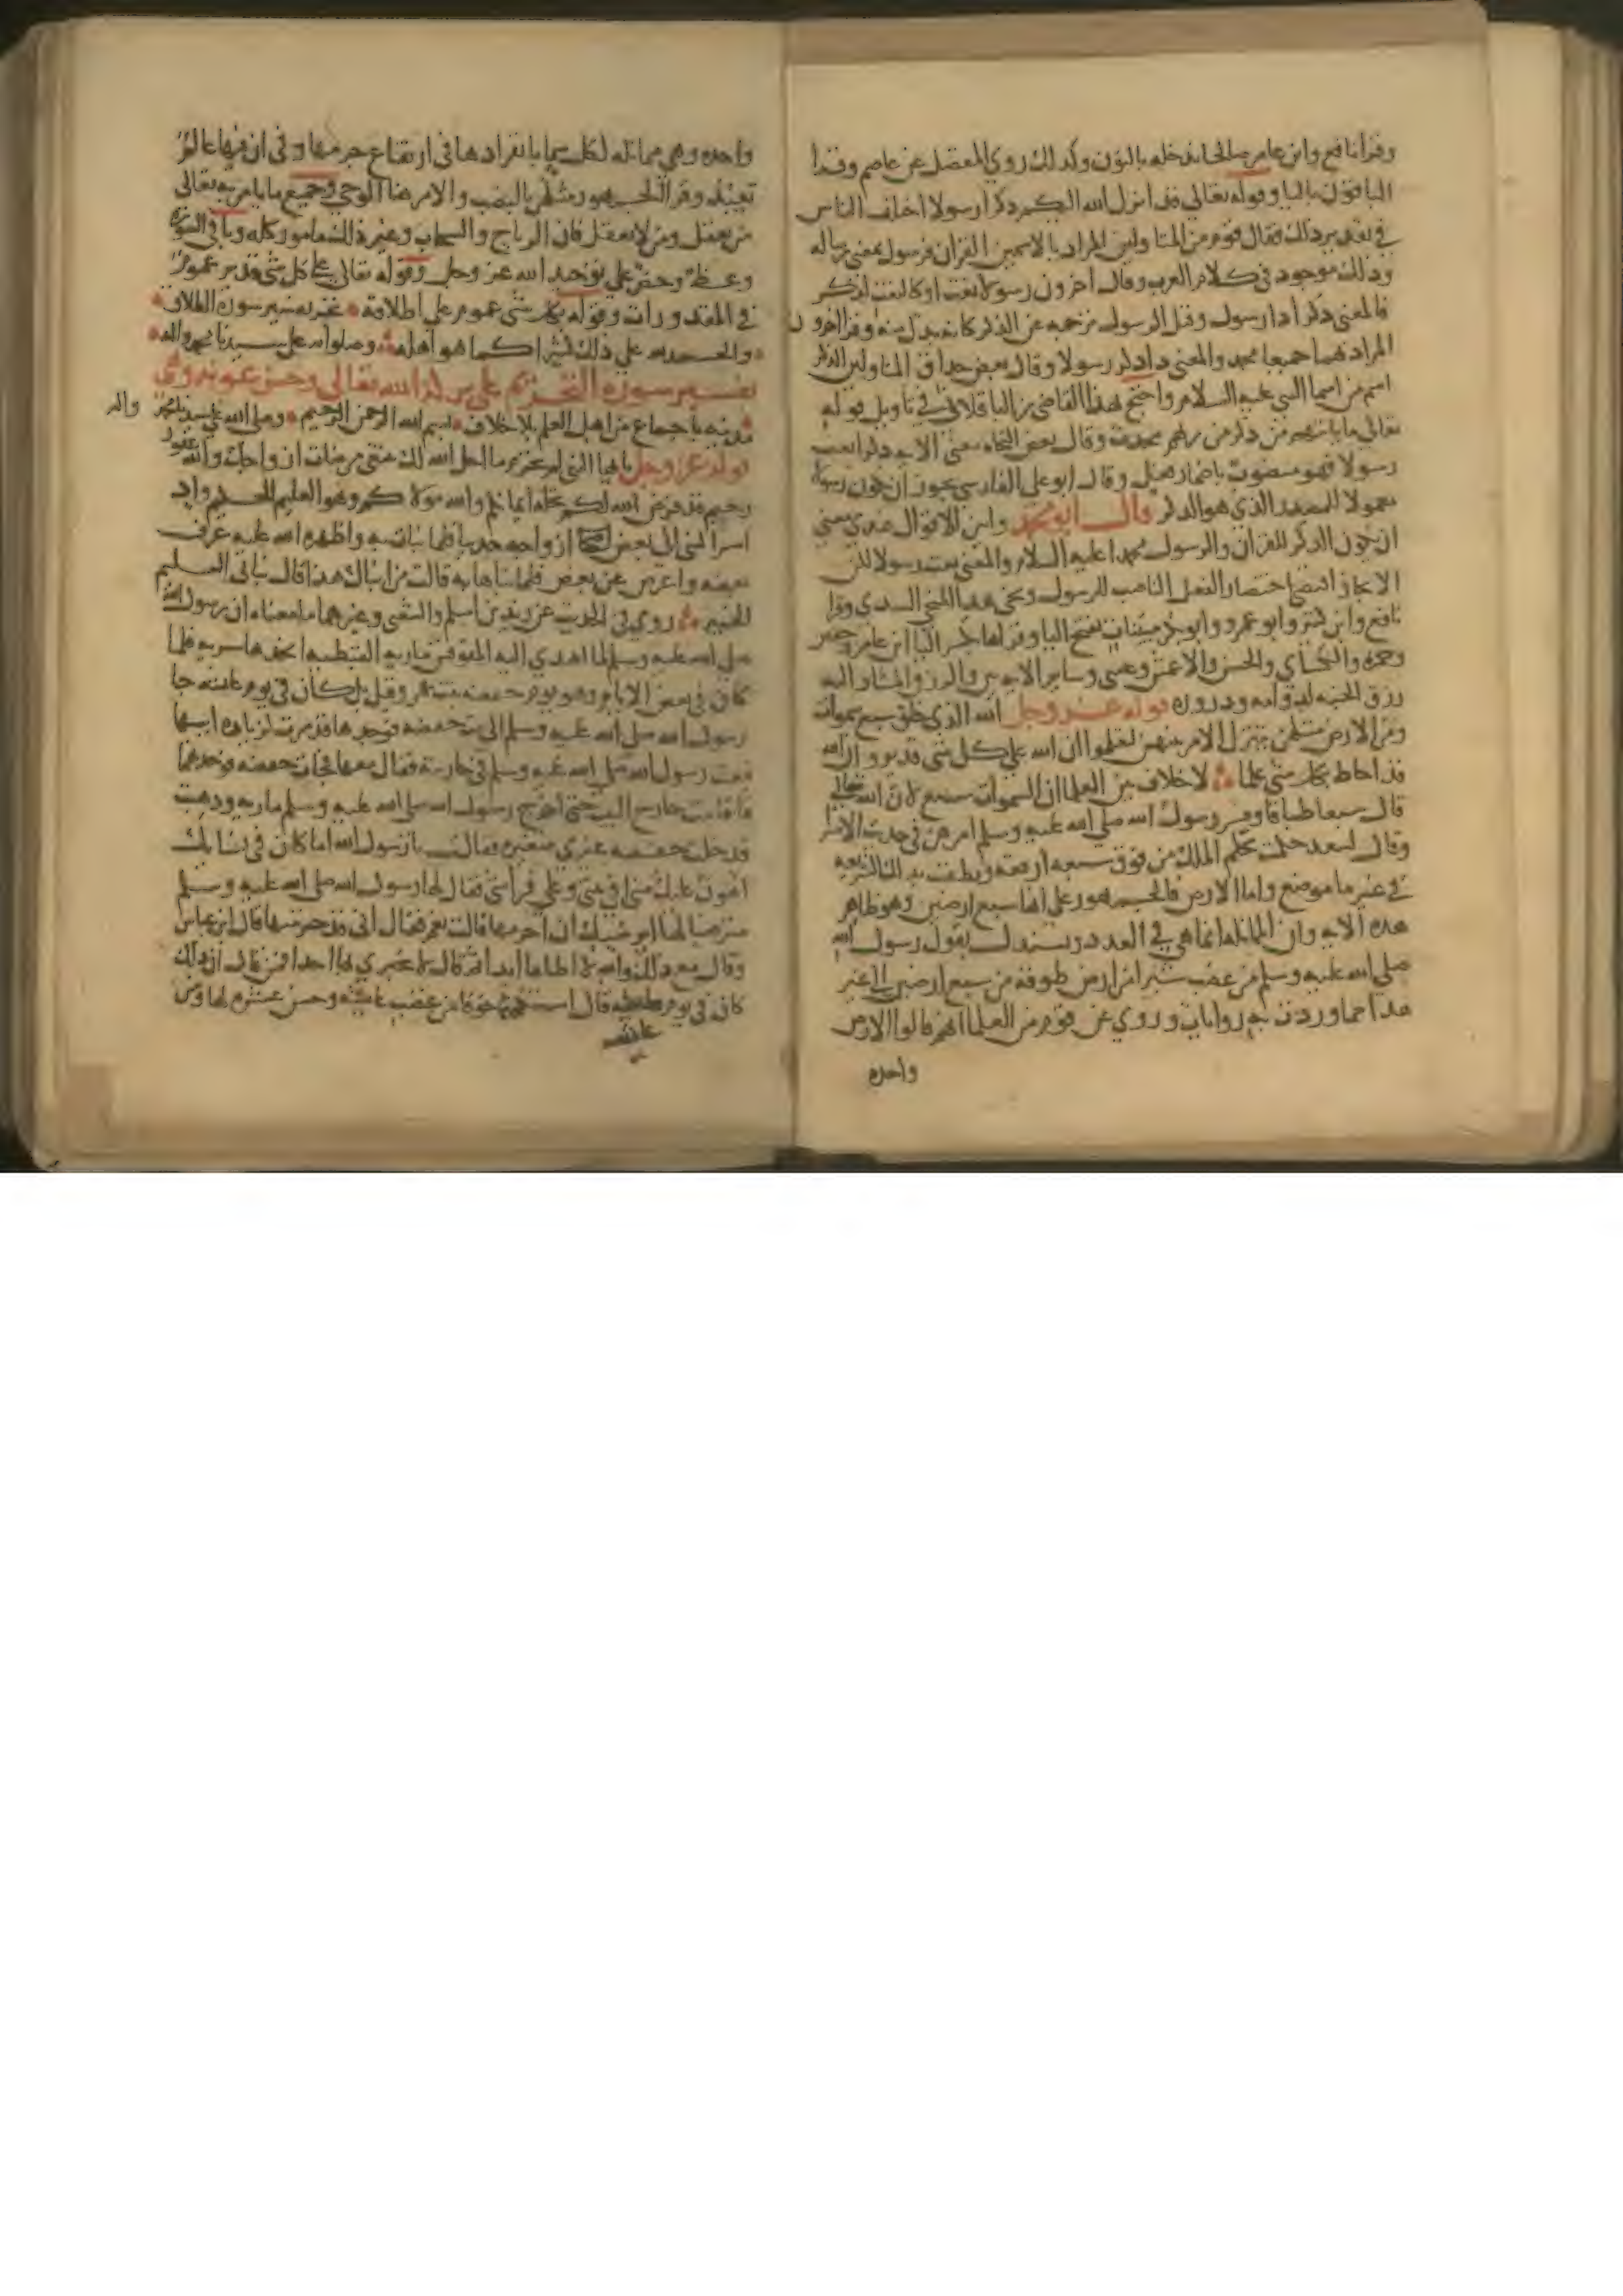 وقرا نافع وابن عامر صالحا ندخله بالنون وكذلك روي المفضل عن عاصم وقرا
الباقون باليا وقوله تعالى قد انزل الله اليكم ذكرا رسولا اختلف الناس
في تقدير ذلك فقال قوم من المتاولين المراد بالاسمين القران فرسول بمعنى رساله
وذلك موجود في كلام العرب وقال اخرون رسولا نعت او كالنعت لذكر
فالمعنى ذكرا ذا رسول وقيل الرسول ترجمه عن الذكر كانه بدل منه وقال اخرون
المراد بهما جميعا محمد والمعنى ذا ذكر رسولا وقال بعض حذاق المتاولين الذكر
اسم من اسما النبي عليه السلام واحتج بهذا القاضي بن الباقلاني في تاويل قوله
تعالى ما ياتيهم من ذكر من ربهم محدث وقال بعض النحاه معنى الايه ذكرا بعث
رسولا فهو منصوب باضمار فعل وقال ابو علي الفارسي يجوز ان يكون رسولا
معمولا للمصدر الذي هو الذكر قال ابو محمد وابين الاقوال عندي معنى
ان يكون الذكر للقران والرسول محمدا عليه السلام والمعنى بعث رسولا لكن
الايجاز اقتضى اختصار الفعل الناصب للرسول ونحى هذا المنحى السدي وقرا
نافع وابن كثير وابو عمرو وابو بكر مبينات بفتح اليا وقراها بكسر اليا ابن عامر وحفص
وحمزه والكسائي والحسن والاعمش وعيسى وساير الايه بين والرزق المشار اليه
رزق الجنه لدوامه ودروره قوله عز وجل الله الذي خلق سبع سموات
ومن الارض مثلهن يتنزل الامر بينهن لتعلموا ان الله على كل شي قدير وان الله
قد احاط بكل شي علما لا خلاف بين العلما ان السموات سبع لان الله تعالى
قال سبعا طباقا وفسر رسول الله صلى الله عليه وسلم امرهن في حديث الاسرا
وقال لسعد حكمت بحكم الملك من فوق سبعه ارقعه ونطقت بذلك الشريعه
في غير ما موضع واما الارض فالجمهور على انها سبع ارضين وهو ظاهر
هذه الايه وان المماثله انما هي في العدد ويستدل بقول رسول الله
صلى الله عليه وسلم من غصب شبرا من ارض طوقه من سبع ارضين الى غير
هذا مما وردت به روايات وروي عن قوم من العلما انهم قالوا الارض
واحده
واحده وهي مماثله لكل سما بانفرادها في ارتفاع جرمها وفي ان فيها عالم
تعبد وقرا الجمهور مثلهن بالنصب والامر هنا الوحي وجميع ما يامر به تعالى
من يعقل ومن لا يعقل فان الرياح والسحاب وغير ذلك مامور كله وباقي السوره
وعظ وحض على توحيد الله عز وجل وقوله تعالى على كل شي قدير عموم
في المقدورات وقوله بكل شي عموم على اطلاقه نجز تفسير سورة الطلاق
والحمد لله على ذلك كثيرا كما هو اهله وصلواته على سيدنا محمد واله
تفسير سورة التحريم على بركة الله تعالى وحسن عونه وهي
مدنيه باجماع من اهل العلم بلا خلاف بسم الله الرحمن الرحيم وصلى الله على سيدنا محمد واله
قوله عز وجل يا ايها النبي لم تحرم ما احل الله لك تبتغي مرضات ازواجك والله غفور
رحيم قد فرض الله لكم تحله ايمانكم والله مولاكم وهو العليم الحكيم واذ
اسر النبي الى بعض ازواجه حديثا فلما نبات به واظهره الله عليه عرف
بعضه واعرض عن بعض فلما نباها به قالت من انباك هذا قال نباني العليم
الخبير روي في الحديث عن زيد بن اسلم والشعبي وغيرهما ما معناه ان رسول الله
صلى الله عليه وسلم لما اهدي اليه المقوقس ماريه القبطيه اتخذها سريه فلما
كان في بعض الايام وهو يوم حفصه بنت عمر وقيل بل كان في يوم عائشه جا
رسول الله صلى الله عليه وسلم الى بيت حفصه فوجدها قد مرت لزياره ابيها
فبعث رسول الله صلى الله عليه وسلم في جاريته فقال معها فجات حفصه فوجدهما
فاقامت خارج البيت حتى اخرج رسول الله صلى الله عليه وسلم ماريه وذهبت
فدخلت حفصه غيرى متغيره فقالت يا رسول الله اما كان في نسائك
اهون عليك مني افي بيتي وعلى فراشي فقال لها رسول الله صلى الله عليه وسلم
مترضيا لها ايرضيك ان احرمها قالت نعم فقال اني قد حرمتها قال ابن عباس
وقال مع ذلك والله لا اطاها ابدا ثم قال لا تخبري بهذا احدا فمن قال ان ذلك
كان في يوم قال استكتمها خوفا من غضب عائشه وحسن عشرته لها ومن
عائشه